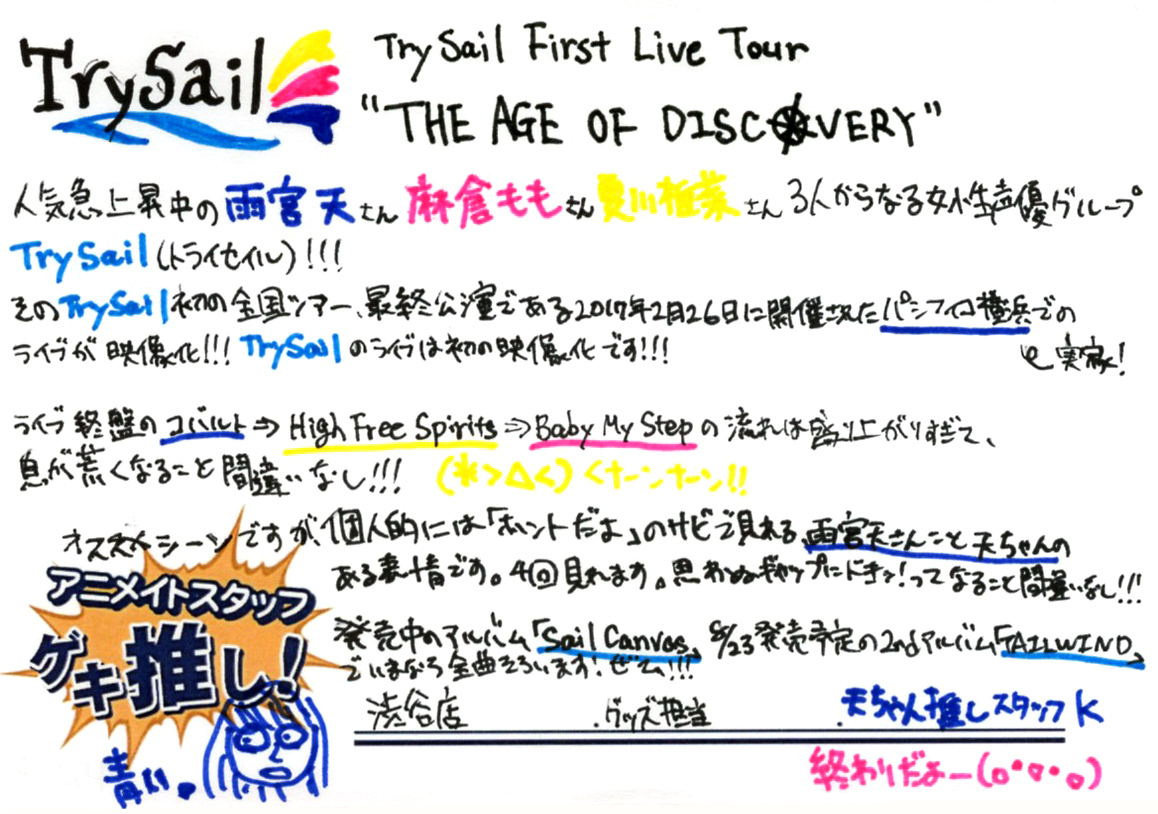 TrySail
TrySail First Live Tour
"THE AGE OF DISCOVERY"
人気急上昇中の雨宮天さん麻倉ももさん夏川椎菜さん3人からなる女性声優グループ
TrySail(トライセイル)!!!
そのTrySail初の全国ツアー、最終公演である2017年2月26日に開催されたパシフィコ横浜での
ライブが映像化!!! TrySailのライブは初の映像化です!!!
実家!
ライブ終盤のコバルト⇒High Free Spirits⇒Baby My Stepの流れは盛り上がりすぎて、
息が荒くなること間違いなし!!! (*>△<)<ナーンナーン!!
オススメシーンですが、個人的には「ホントだよ」のサビで見れる雨宮天さんこと天ちゃんの
ある表情です。4回見れます。思わぬギャップにドキッ!ってなること間違いなし!!!
アニメイトスタッフ
ゲキ推し!
発売中のアルバム「Sail Canvas」8/23発売予定の2ndアルバム「TAILWIND」
でいまなら全曲そろいます!ぜひ!!!
渋谷店 .グッズ担当 .天ちゃん推しスタッフK
青い。
終わりだよー(o・▽・o)